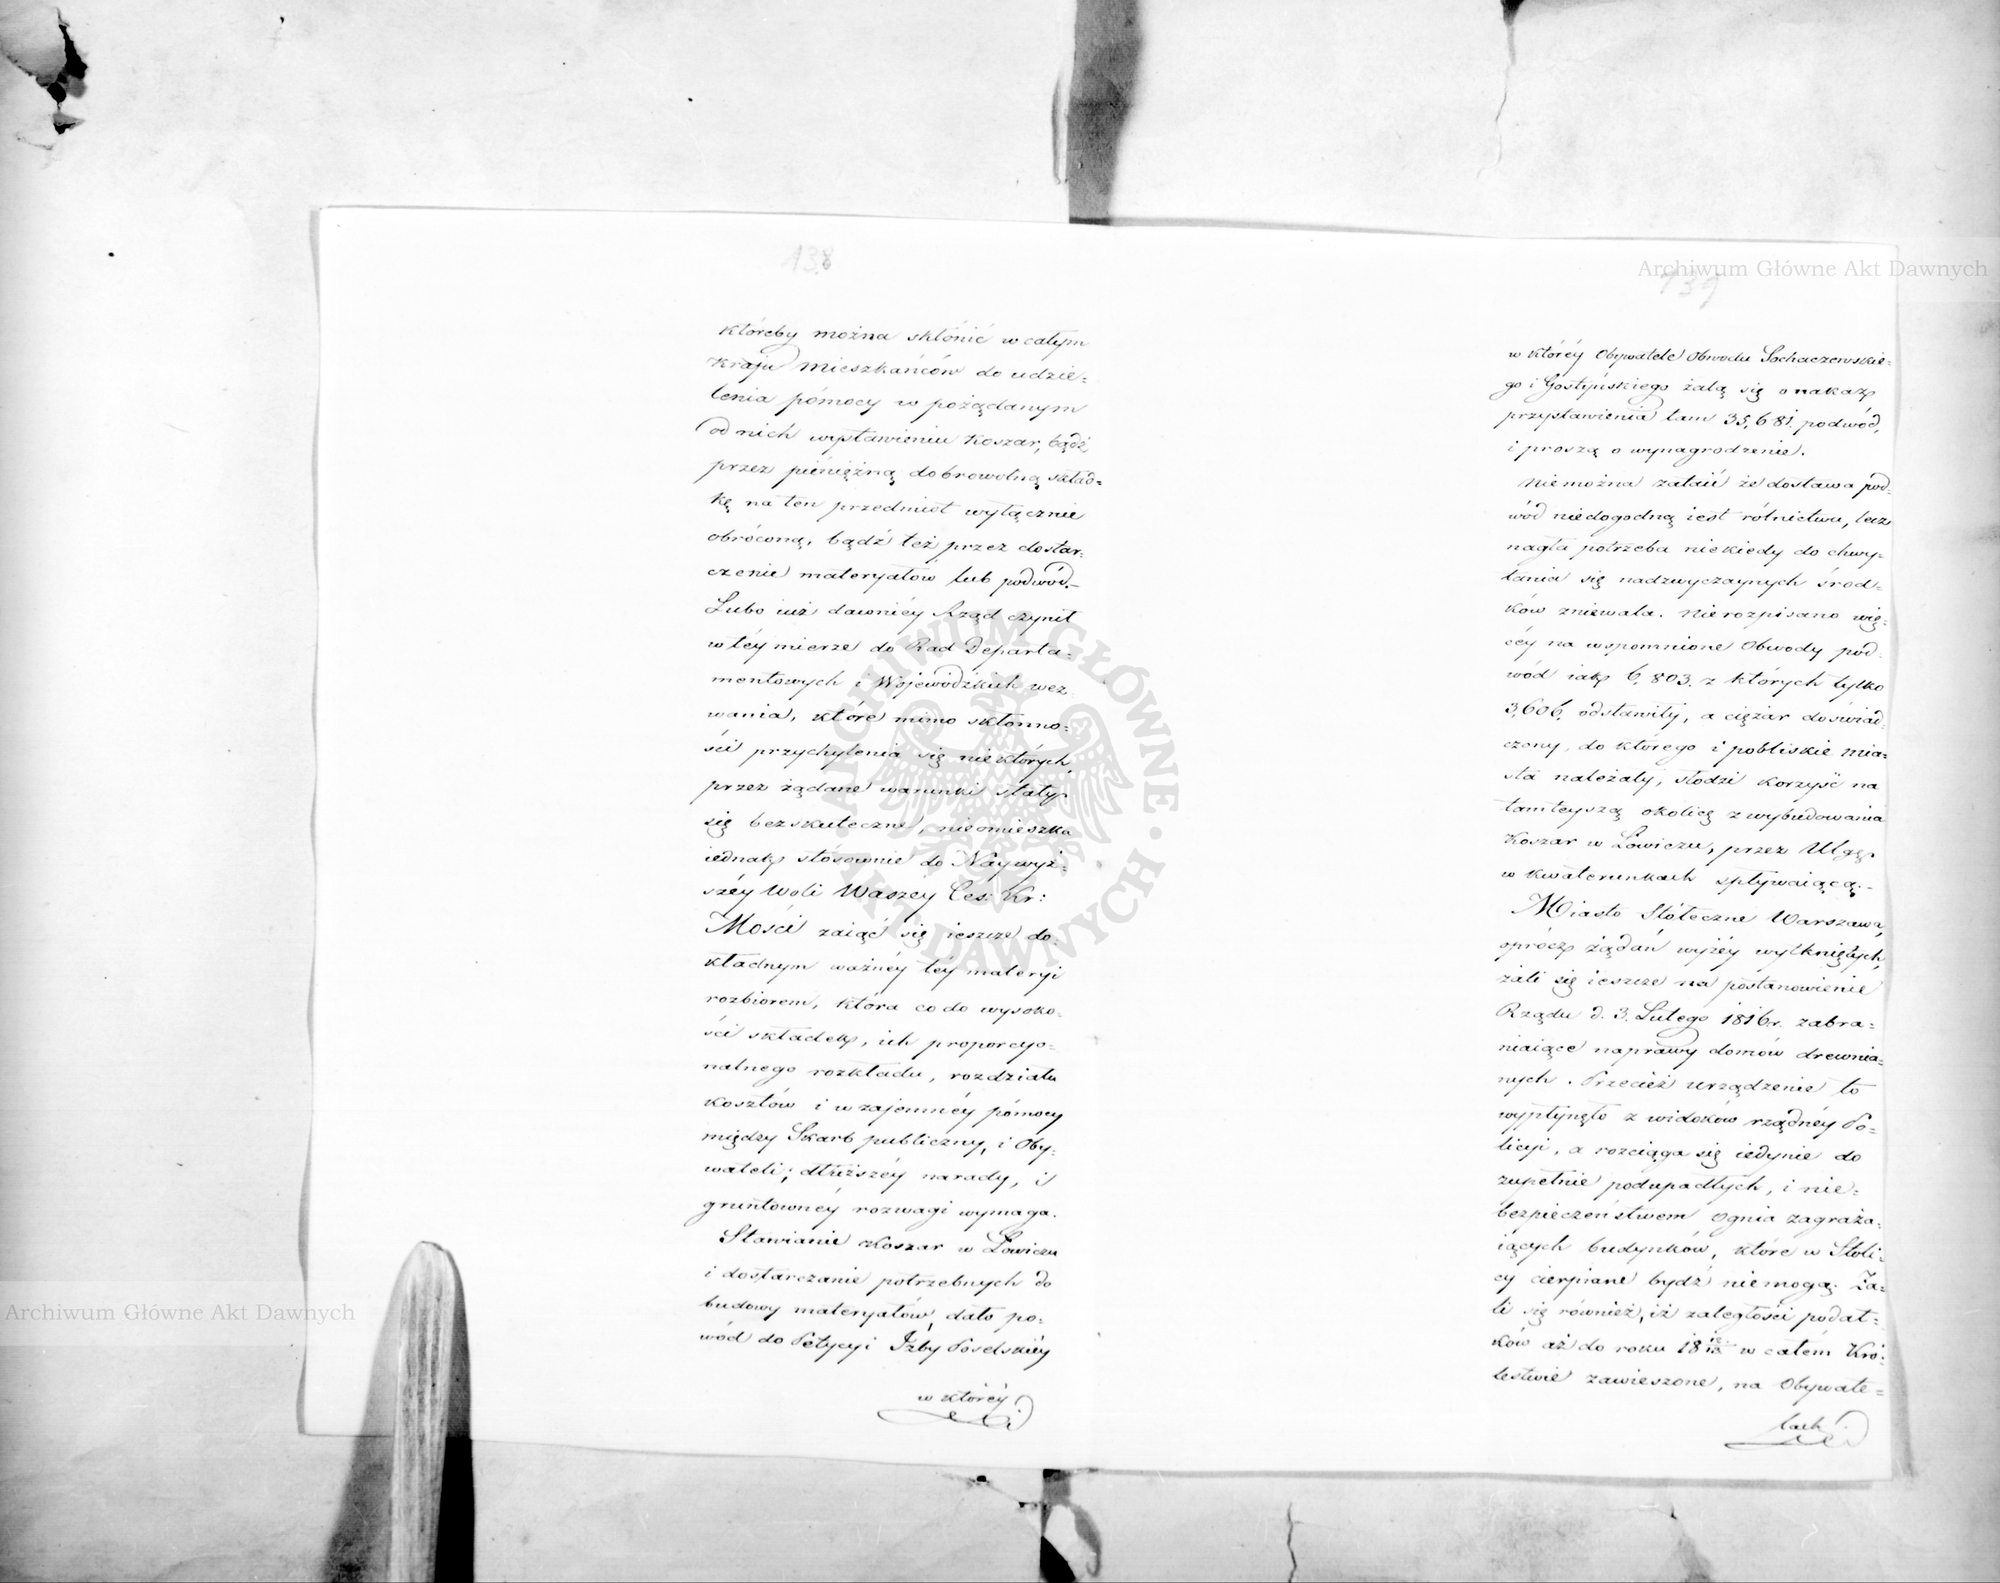 138
któreby można skłonić w całym
kraju mieszkańców do udzie-
lenia pomocy w pożądanym
od nich wystawieniu koszar, bądź
przez pieniężną dobrowolną skład-
kę na ten przedmiot wyłącznie
obróconą, bądź też przez dostar-
czenie materyałów lub podwód.
Lubo iuż dawniéy Rząd czynił
w téy mierze do Rad Departa-
mentowych i Wojewódzkich wez-
wania, które mimo skłonno-
ści przychylenia się niektórych,
przez żądane warunki stały
się bezskuteczne, nieomieszka
iednak stósownie do Naywyż-
széy Woli Waszey Ces: Kr:
Mości zaiąć się ieszcze do-
kładnym ważnéy téy materyi
rozbiorem, która co do wysoko-
ści składek, ich proporcyo-
nalnego rozkładu, rozdziału
kosztów i wzajemnéy pómocy
między Skarb publiczny, i Oby-
wateli; dłuższéy narady, i
gruntownéy rozwagi wymaga.
Stawianie Koszar w Łowiczu
i dostarczanie potrzebnych do
budowy materyałów, dało po-
wód do Petycyi Izby Poselskiéy
w któréy
139
w któréy Obywatele Obwodu Sochaczewskie-
go i Gostyńskiego żalą się o nakaz
przystawienia tam 35,681. podwód,
i proszą o wynagrodzenie.
Niemożna zataić że dostawa pod-
wód niedogodną iest rólnictwu, lecz
nagła potrzeba niekiedy do chwy-
tania się nadzwyczaynych środ-
ków zniewala. Nierozpisano wię-
céy na wspomnione Obwody pod-
wód iak 6,803. z których tylko
3,606. odstawiły, a ciężar doświad-
czony, do którego i pobliskie mia-
sta należały, słodzi korzyść na
tamteyszą okolicę z wybudowania
Koszar w Łowiczu, przez Ulgę
w kwaterunkach spływaiącą.
Miasto Stołeczne Warszawa,
oprócz żądań wyżéy wytkniętych,
żali się ieszcze na postanowienie
Rządu d. 3. Lutego 1816 r. zabra-
niaiące naprawy domów drewnia-
nych. Przecież urządzenie to
wypłynęło z widoków rządnéy Po-
licyi, a rozciąga się iedynie do
zupełnie podupadłych, i nie-
bezpieczeństwem ognia zagraża-
iących budynków, które w Stoli-
cy cierpiane bydź niemogą. Ża-
li się również, iż zaległości podat-
ków aż do roku 18 w całém Kró-
lestwie zawieszone, na Obywate-
lach
Archiwum Główne Akt Dawnych
Archiwum Główne Akt Dawnych
ARCHIWUM GŁÓWNE AKT DAWNYCH